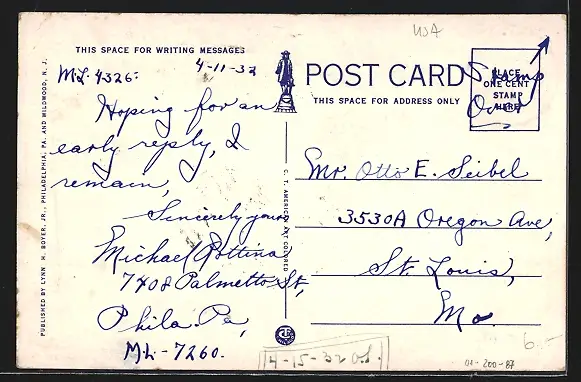 USA
THIS SPACE FOR WRITING MESSAGES
4-11-32
M.L. 4326:
Hoping for an
early reply, I
remain,
Sincerely yours
Michael
7408 Palmetto St,
Phila. Pa,
M.L.-7260.
PUBLISHED BY LYNN H. BOYER, JR., PHILADELPHIA, PA. AND WILDWOOD, N. J.
C. T. AMERICAN ART COLORED
POST CARD
THIS SPACE FOR ADDRESS ONLY
PLACE
ONE CENT
STAMP
HERE
Stamp
Over
Mr. Otto E. Seibel
3530A Oregon Ave,
St. Louis,
Mo.
4-15-32
6.-
01-200-87